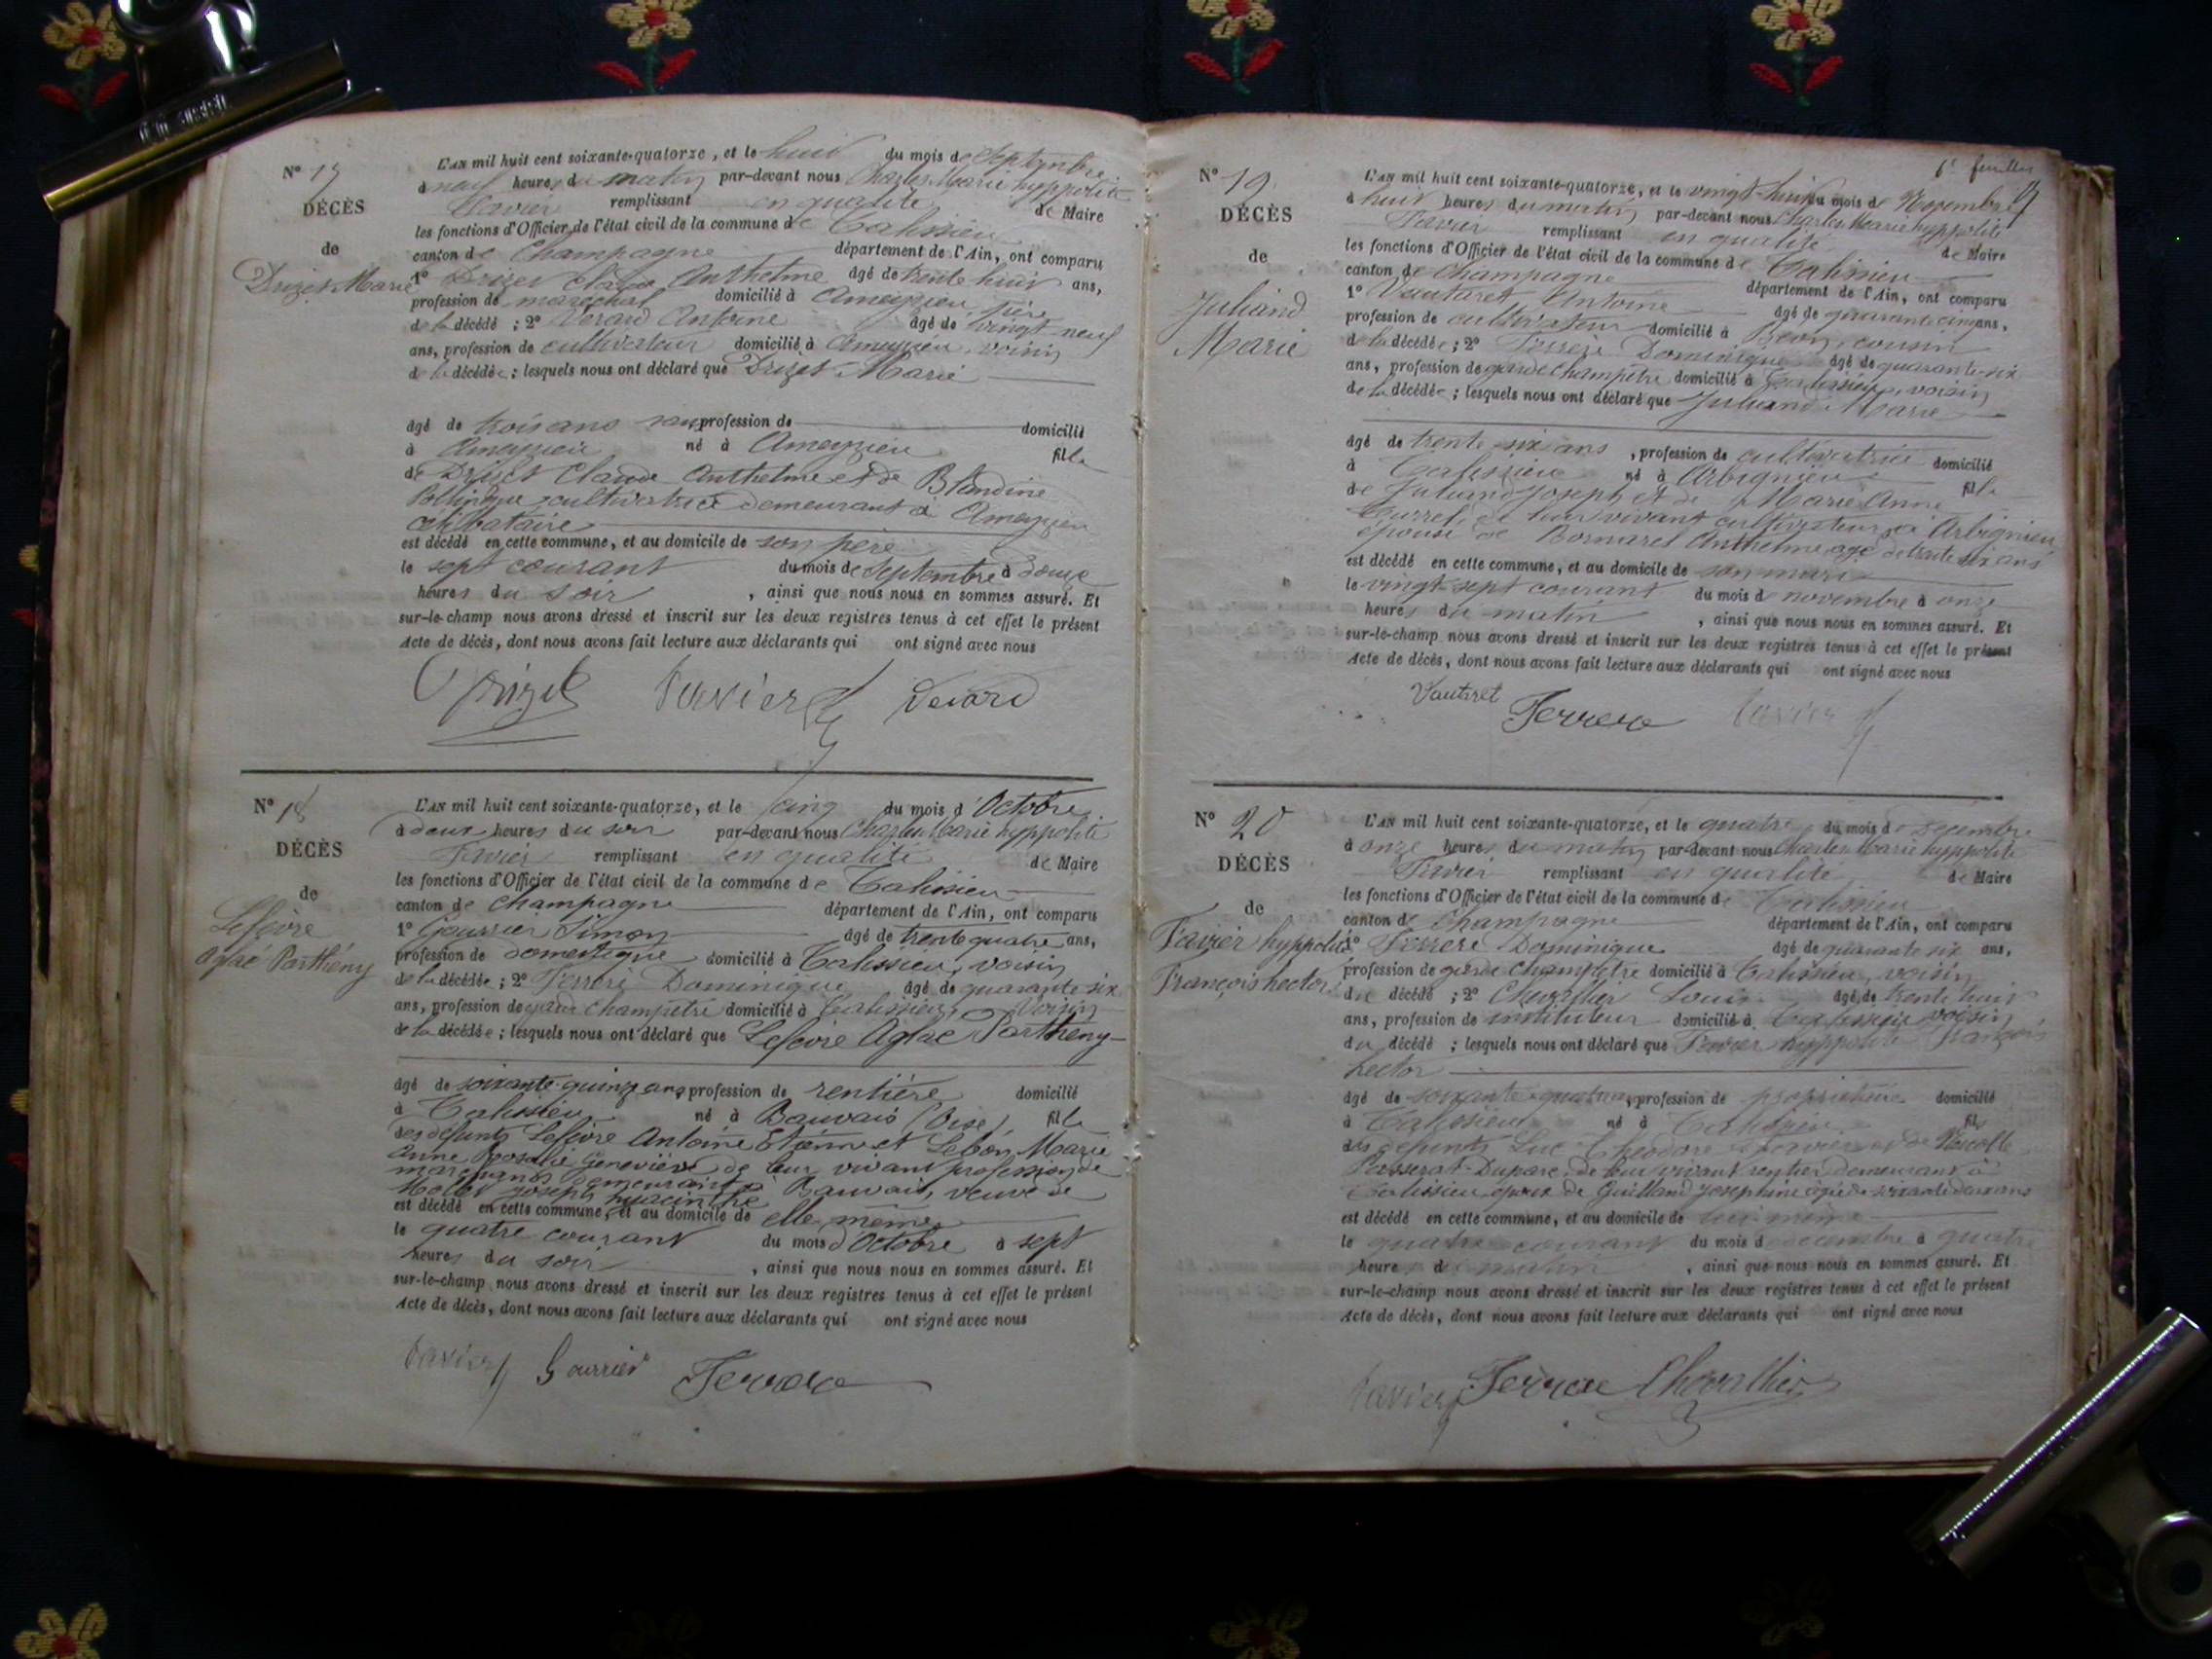 N° 17
DÉCÈS
de
Drizet Marie
L'AN mil huit cent soixante-quatorze, et le huit du mois de Septembre
à neuf heures du matin par-devant nous Charles Marie hyppolite
Favier remplissant en qualité de Maire
les fonctions d'Officier de l'état civil de la commune de Talissieu
canton de Champagne département de l'Ain, ont comparu
1° Drizet Claude Anthelme âgé de trente huit ans,
profession de maréchal domicilié à Ameyzieu, père
de la décédé ; 2° Verard Antoine âgé de vingt-neuf
ans, profession de cultivateur domicilié à Ameyzieu, voisin
de la décédée ; lesquels nous ont déclaré que Drizet Marie
âgé de trois ans sans profession de domicilié
à Ameyzieu né à Ameyzieu fille
de Drizet Claude Anthelme et de Blandine
cultivatrice demeurant à Ameyzieu
célibataire
est décédé en cette commune, et au domicile de son père
le sept courant du mois de Septembre à douze
heures du soir , ainsi que nous nous en sommes assuré. Et
sur-le-champ nous avons dressé et inscrit sur les deux registres tenus à cet effet le présent
Acte de décès, dont nous avons fait lecture aux déclarants qui ont signé avec nous
Drizet Favier Verard
N° 18
DÉCÈS
de
Lefèvre
Aglaé Parthény
L'AN mil huit cent soixante-quatorze, et le cinq du mois d'Octobre
à deux heures du soir par-devant nous Charles Marie hyppolite
Favier remplissant en qualité de Maire
les fonctions d'Officier de l'état civil de la commune de Talissieu
canton de Champagne département de l'Ain, ont comparu
1° Gourrier Simon âgé de trente quatre ans,
profession de domestique domicilié à Talissieu, voisin
de la décédée ; 2° Ferrere Dominique âgé de quarante six
ans, profession de garde champêtre domicilié à Talissieu, voisin
de la décédée ; lesquels nous ont déclaré que Lefèvre Aglaé Partheny
âgé de soixante-quinze ans, profession de rentière domicilié
à Talissieu né à Bauvais (Oise) fille
des défunts Lefèvre Antoine Etienne et Lebon Marie
Anne Rosalie Geneviève de leur vivant profession de
marchands demeurant à Bauvais, veuve de
Joseph hyacinthe
est décédé en cette commune, et au domicile de elle même
le quatre courant du mois d'Octobre à sept
heures du soir , ainsi que nous nous en sommes assuré. Et
sur-le-champ nous avons dressé et inscrit sur les deux registres tenus à cet effet le présent
Acte de décès, dont nous avons fait lecture aux déclarants qui ont signé avec nous
Favier Gourrier Ferrere
6e feuillet
N° 19
DÉCÈS
de
Juliand
Marie
L'AN mil huit cent soixante-quatorze, et le vingt-huit du mois de Novembre
à huit heures du matin par-devant nous Charles Marie hyppolite
Favier remplissant en qualité de Maire
les fonctions d'Officier de l'état civil de la commune de Talissieu
canton de Champagne département de l'Ain, ont comparu
1° Vautaret Antoine âgé de quarante cinq ans,
profession de cultivateur domicilié à Béon, cousin
de la décédée ; 2° Ferrere Dominique âgé de quarante-six
ans, profession de garde champêtre domicilié à Talissieu, voisin
de la décédée ; lesquels nous ont déclaré que Juliand Marie
âgé de trente-six ans , profession de cultivatrice domicilié
à Talissieu né à Arbignieu fille
de Juliand Joseph et de Marie Anne
de leur vivant cultivateurs à Arbignieu
épouse de Bornarel Anthelme âgé de trente six ans
est décédé en cette commune, et au domicile de son mari
le vingt-sept courant du mois de novembre à onze
heures du matin , ainsi que nous nous en sommes assuré. Et
sur-le-champ nous avons dressé et inscrit sur les deux registres tenus à cet effet le présent
Acte de décès, dont nous avons fait lecture aux déclarants qui ont signé avec nous
Vautaret Ferrere Favier
N° 20
DÉCÈS
de
Favier hyppolite
François hector
L'AN mil huit cent soixante-quatorze, et le quatre du mois de Décembre
à onze heures du matin par-devant nous Charles Marie hyppolite
Favier remplissant en qualité de Maire
les fonctions d'Officier de l'état civil de la commune de Talissieu
canton de Champagne département de l'Ain, ont comparu
1° Ferrere Dominique âgé de quarante six ans,
profession de garde champêtre domicilié à Talissieu, voisin
du décédé ; 2° Chevallier Louis âgé de trente huit
ans, profession de instituteur domicilié à Talissieu voisin
du décédé ; lesquels nous ont déclaré que Favier hyppolite François
hector
âgé de soixante-quatre ans, profession de propriétaire domicilié
à Talissieu né à Talissieu fils
des défunts Luc Théodore Favier et de Nicolle
Passerat-Duparc, de leur vivant rentier demeurant à
Talissieu époux de Guilland Josephine âgée de soixante deux ans
est décédé en cette commune, et au domicile de lui même
le quatre courant du mois de décembre à quatre
heures du matin , ainsi que nous nous en sommes assuré. Et
sur-le-champ nous avons dressé et inscrit sur les deux registres tenus à cet effet le présent
Acte de décès, dont nous avons fait lecture aux déclarants qui ont signé avec nous
Favier Ferrere Chevallier